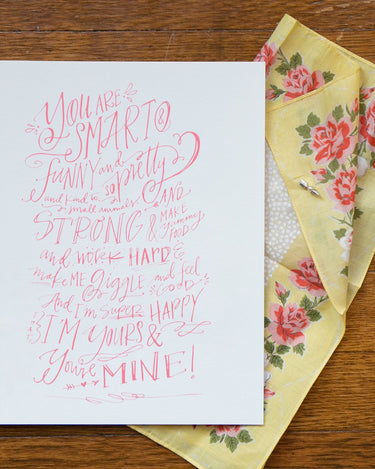 YOU ARE
SMART &
FUNNY and
so pretty
and kind to small animals AND
STRONG & MAKE yummy FOOD
and work HARD
make ME giggle and feel GOOD
And I'm Super HAPPY
I'M YOURS &
You're MINE!